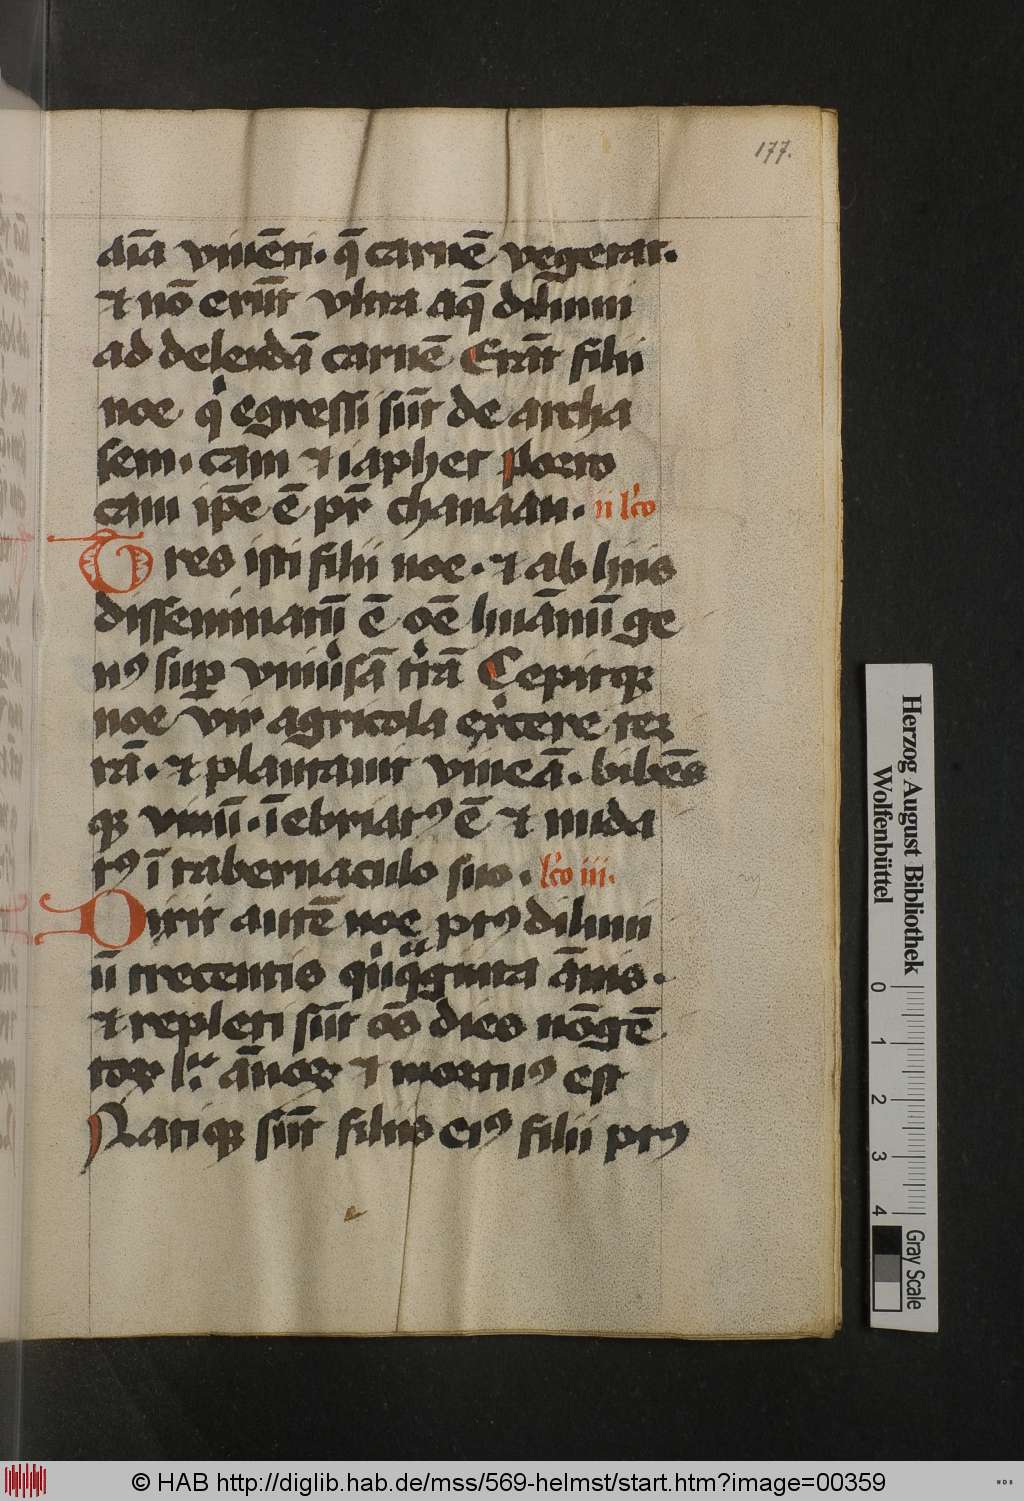 177.
aīa viuēti. q̄ carnē vegetat.
⁊ nō erūt vltra aq̄ diluuii
ad delendā carnē Erāt filii
noe q̇ egressi sūt de archa
sem. cam ⁊ iaphet Porro
cam ip̄e ē pr̄ chanaan. ii lc̄o
Tres isti filii noe. ⁊ ab hiis
disseminatū ē oē huānū ge
nꝰ suꝑ vniūsā t̄rā Cepitqꝫ
noe vir agricola ex̄cere ter
rā. ⁊ plantauit vineā. bibēs
qꝫ vinū. īebriatꝰ ē ⁊ nuda
tꝰ ī tabernaculo suo. lc̄o iii.
Vixit autē noe ptꝰ diluui
ū trecentis qͥ̄nqͣginta ānis.
⁊ repleti sūt oēs dies nōgē
toꝝ lͭᵃ ānoꝝ ⁊ mortuꝰ est
Natiqꝫ sūt filiis eiꝰ filii ptꝰ
Herzog August Bibliothek
Wolfenbüttel
0 1 2 3 4
Gray Scale
© HAB http://diglib.hab.de/mss/569-helmst/start.htm?image=00359